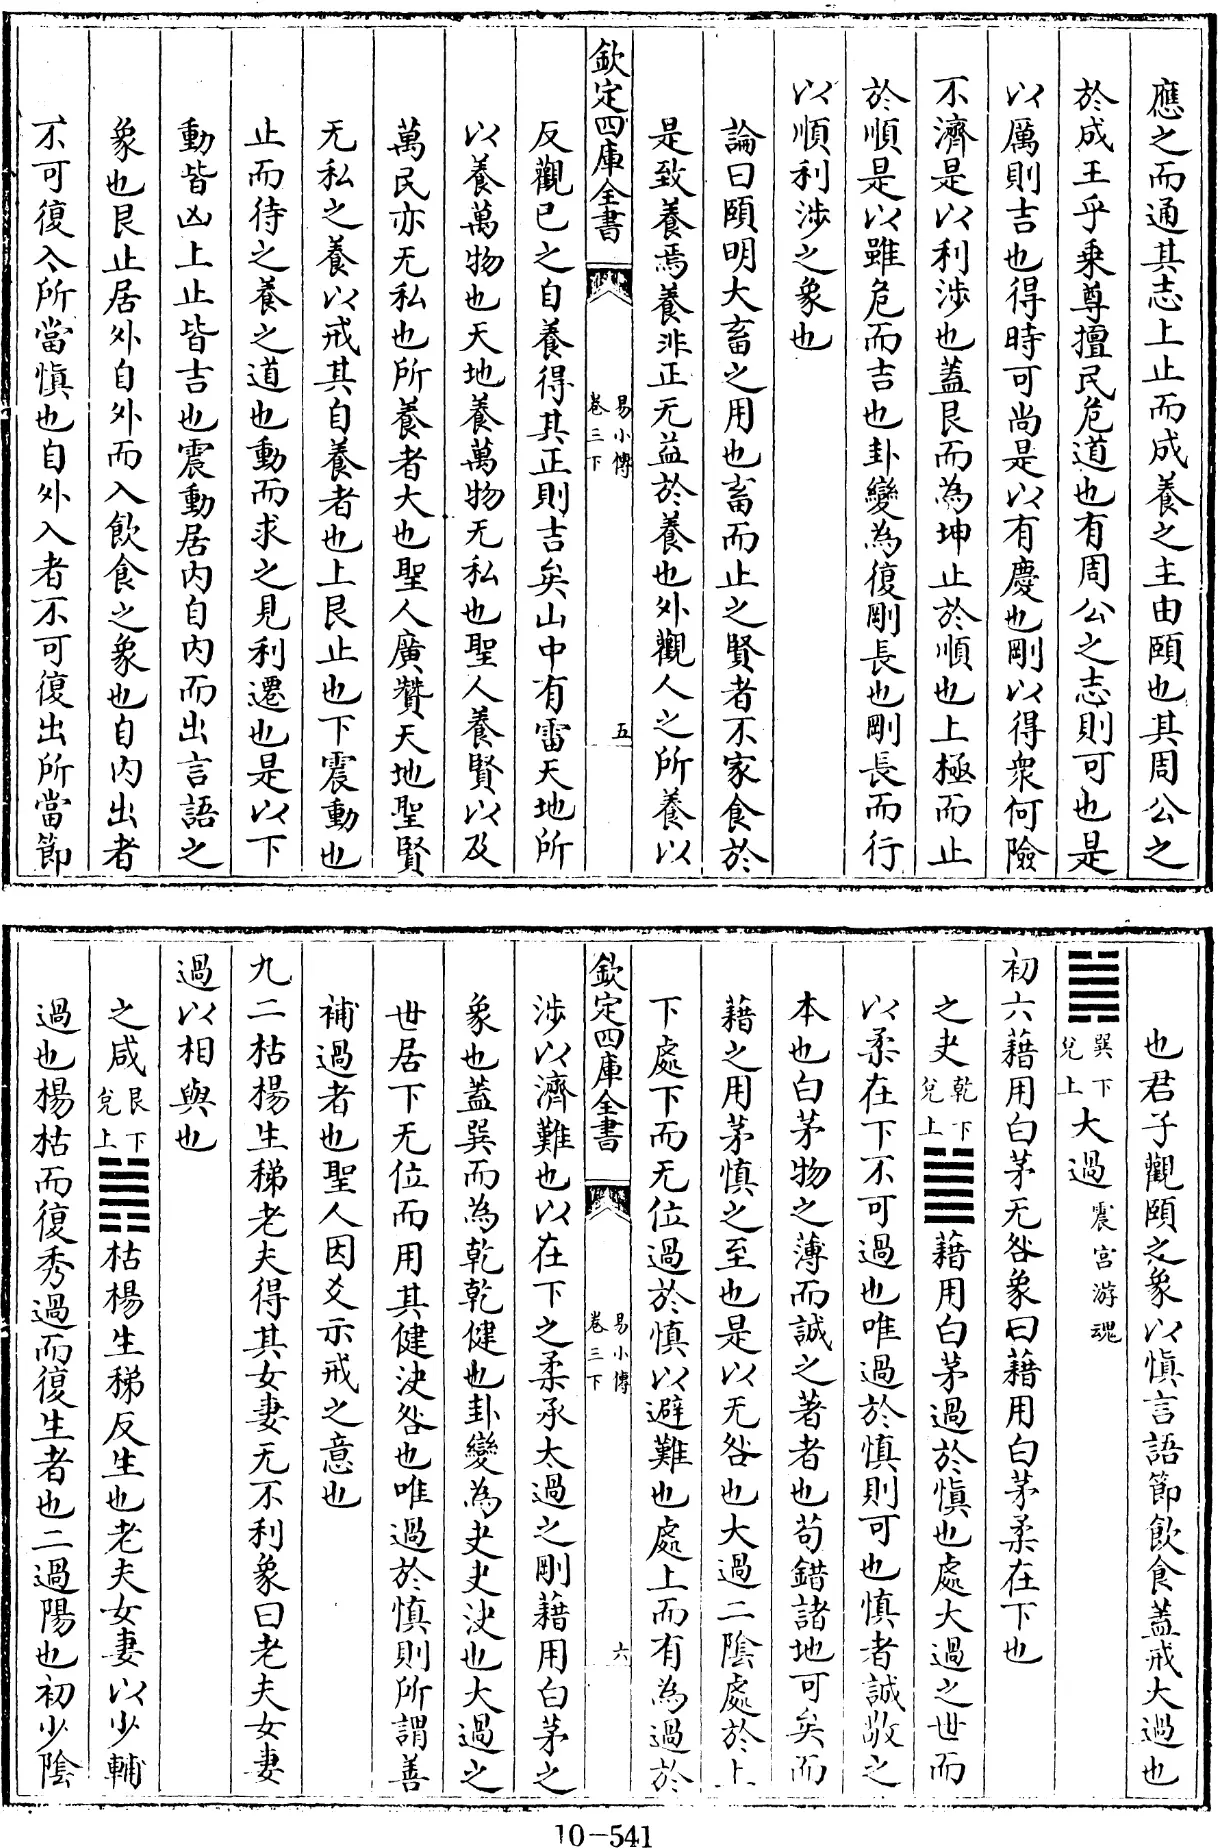 應之而通其志上止而成養之主由頤也其周公之
於成王乎乗尊擅民危道也有周公之志則可也是
以厲則吉也得時可尚是以有慶也剛以得衆何險
不濟是以利涉也蓋艮而為坤止於順也上極而止
於順是以雖危而吉也卦變為復剛長也剛長而行
以順利涉之象也
論曰頤明大畜之用也畜而止之賢者不家食於
是致養焉養非正无益於養也外觀人之所養以
欽定四庫全書
易小傳
卷三下
五
反觀已之自養得其正則吉矣山中有雷天地所
以養萬物也天地養萬物无私也聖人養賢以及
萬民亦无私也所養者大也聖人廣贊天地聖賢
无私之養以戒其自養者也上艮止也下震動也
止而待之養之道也動而求之見利遷也是以下
動皆凶上止皆吉也震動居内自内而出言語之
象也艮止居外自外而入飲食之象也自内出者
不可復入所當慎也自外入者不可復出所當節
也君子觀頤之象以慎言語節飲食蓋戒大過也
䷛巽下兌上大過震宫游魂
初六藉用白茅无咎象曰藉用白茅柔在下也
之夬乾下兌上䷪藉用白茅過於慎也處大過之世而
以柔在下不可過也唯過於慎則可也慎者誠敬之
本也白茅物之薄而誠之著者也苟錯諸地可矣而
藉之用茅慎之至也是以无咎也大過二陰處於上
下處下而无位過於慎以避難也處上而有為過於
欽定四庫全書
易小傳
卷三下
六
涉以濟難也以在下之柔承太過之剛藉用白茅之
象也蓋巽而為乾乾健也卦變為夬夬決也大過之
世居下无位而用其健決咎也唯過於慎則所謂善
補過者也聖人因爻示戒之意也
九二枯楊生稊老夫得其女妻无不利象曰老夫女妻
過以相與也
之咸艮下兌上䷞枯楊生稊反生也老夫女妻以少輔
過也楊枯而復秀過而復生者也二過陽也初少陰
10-541